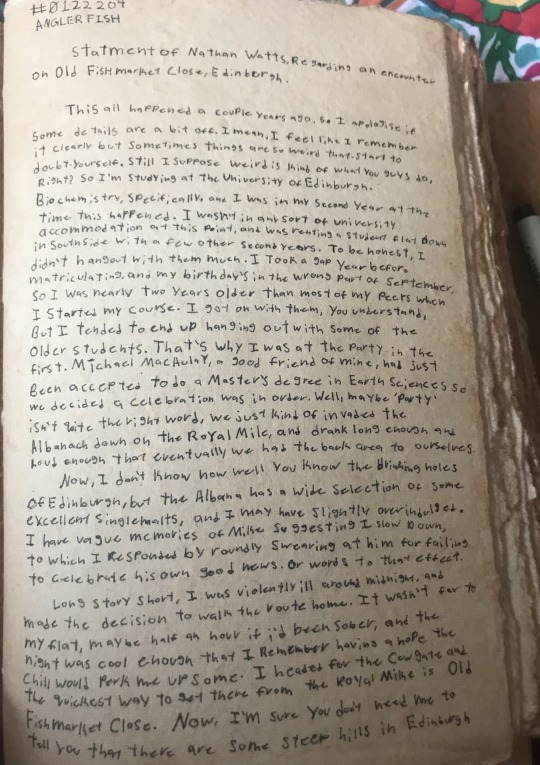 #0122204
ANGLER FISH
Statment of Nathan Watts, Regarding an encounter
on Old Fishmarket Close, Edinburgh.
This all happened a couple years ago, so I apologise if
some details are a bit off. I mean, I feel like I remember
it clearly but sometimes things are so weird that start to
doubt yourself. Still I suppose weird is kind of what you guys do,
Right? So I'm studying at the University of Edinburgh.
Biochemistry, specifically, and I was in my second year at the
time this happened. I wasn't in any sort of university
accommodation at this point, and was renting a student flat down
in Southside with a few other second years. To be honest, I
didn't hangout with them much. I took a gap year before
matriculating, and my birthday's in the wrong part of September,
so I was nearly two years older than most of my peers when
I started my course. I got on with them, you understand,
But I tended to end up hanging out with some of the
older students. That's why I was at the party in the
first. Michael MacAulay, a good friend of mine, had just
Been accepted to do a Master's degree in Earth Sciences so
we decided a celebration was in order. Well, maybe 'Party'
isn't quite the right word, we just kind of invaded the
Albanach down on the Royal Mile, and drank long enough and
loud enough that eventually we had the back area to ourselves.
Now, I don't know how well you know the drinking holes
of Edinburgh, but the Albana has a wide selection of some
excellent singlemalts, and I may have slightly overindulged.
I have vague memories of Mike suggesting I slow down,
to which I responded by roundly swearing at him for failing
to celebrate his own good news. Or words to that effect.
Long story short, I was violently ill around midnight, and
made the decision to walk the route home. It wasn't far to
my flat, maybe half an hour if i'd been sober, and the
night was cool enough that I Remember having a hope the
Chill would perk me up some. I headed for the Cowgate and
the quickest way to get there from the Royal Mike is Old
Fishmarket Close. Now, I'm sure you don't need me to
tell you that there are some steep hills in Edinburgh